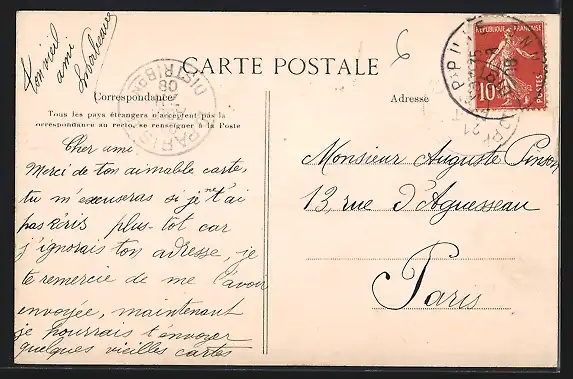 Ton vieil
ami
CARTE POSTALE
Correspondance
Tous les pays étrangers n'acceptent pas la
correspondance au recto, se renseigner à la Poste
Adresse
REPUBLIQUE FRANÇAISE
10
POSTES
PARIS
DISTRIBON
08
6
Cher ami
Merci de ton aimable carte,
tu m'excuseras si je ne t'ai
pas écris plus-tôt car
j'ignorais ton adresse, je
te remercie de me l'avoir
envoyée, maintenant
je pourrais t'envoyer
quelques vieilles cartes
Monsieur Auguste
13, rue d'Aguesseau
Paris